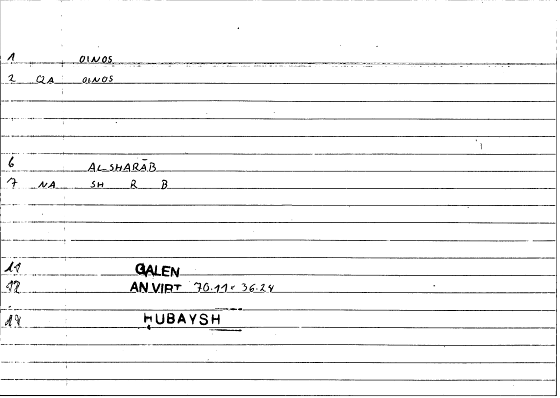 1 OINOS
2 QA OINOS
6 ALSHARĀB
7 NA SH R B
11 GALEN
12 AN VIRT 70.11 = 36.24
14 ḤUBAYSH